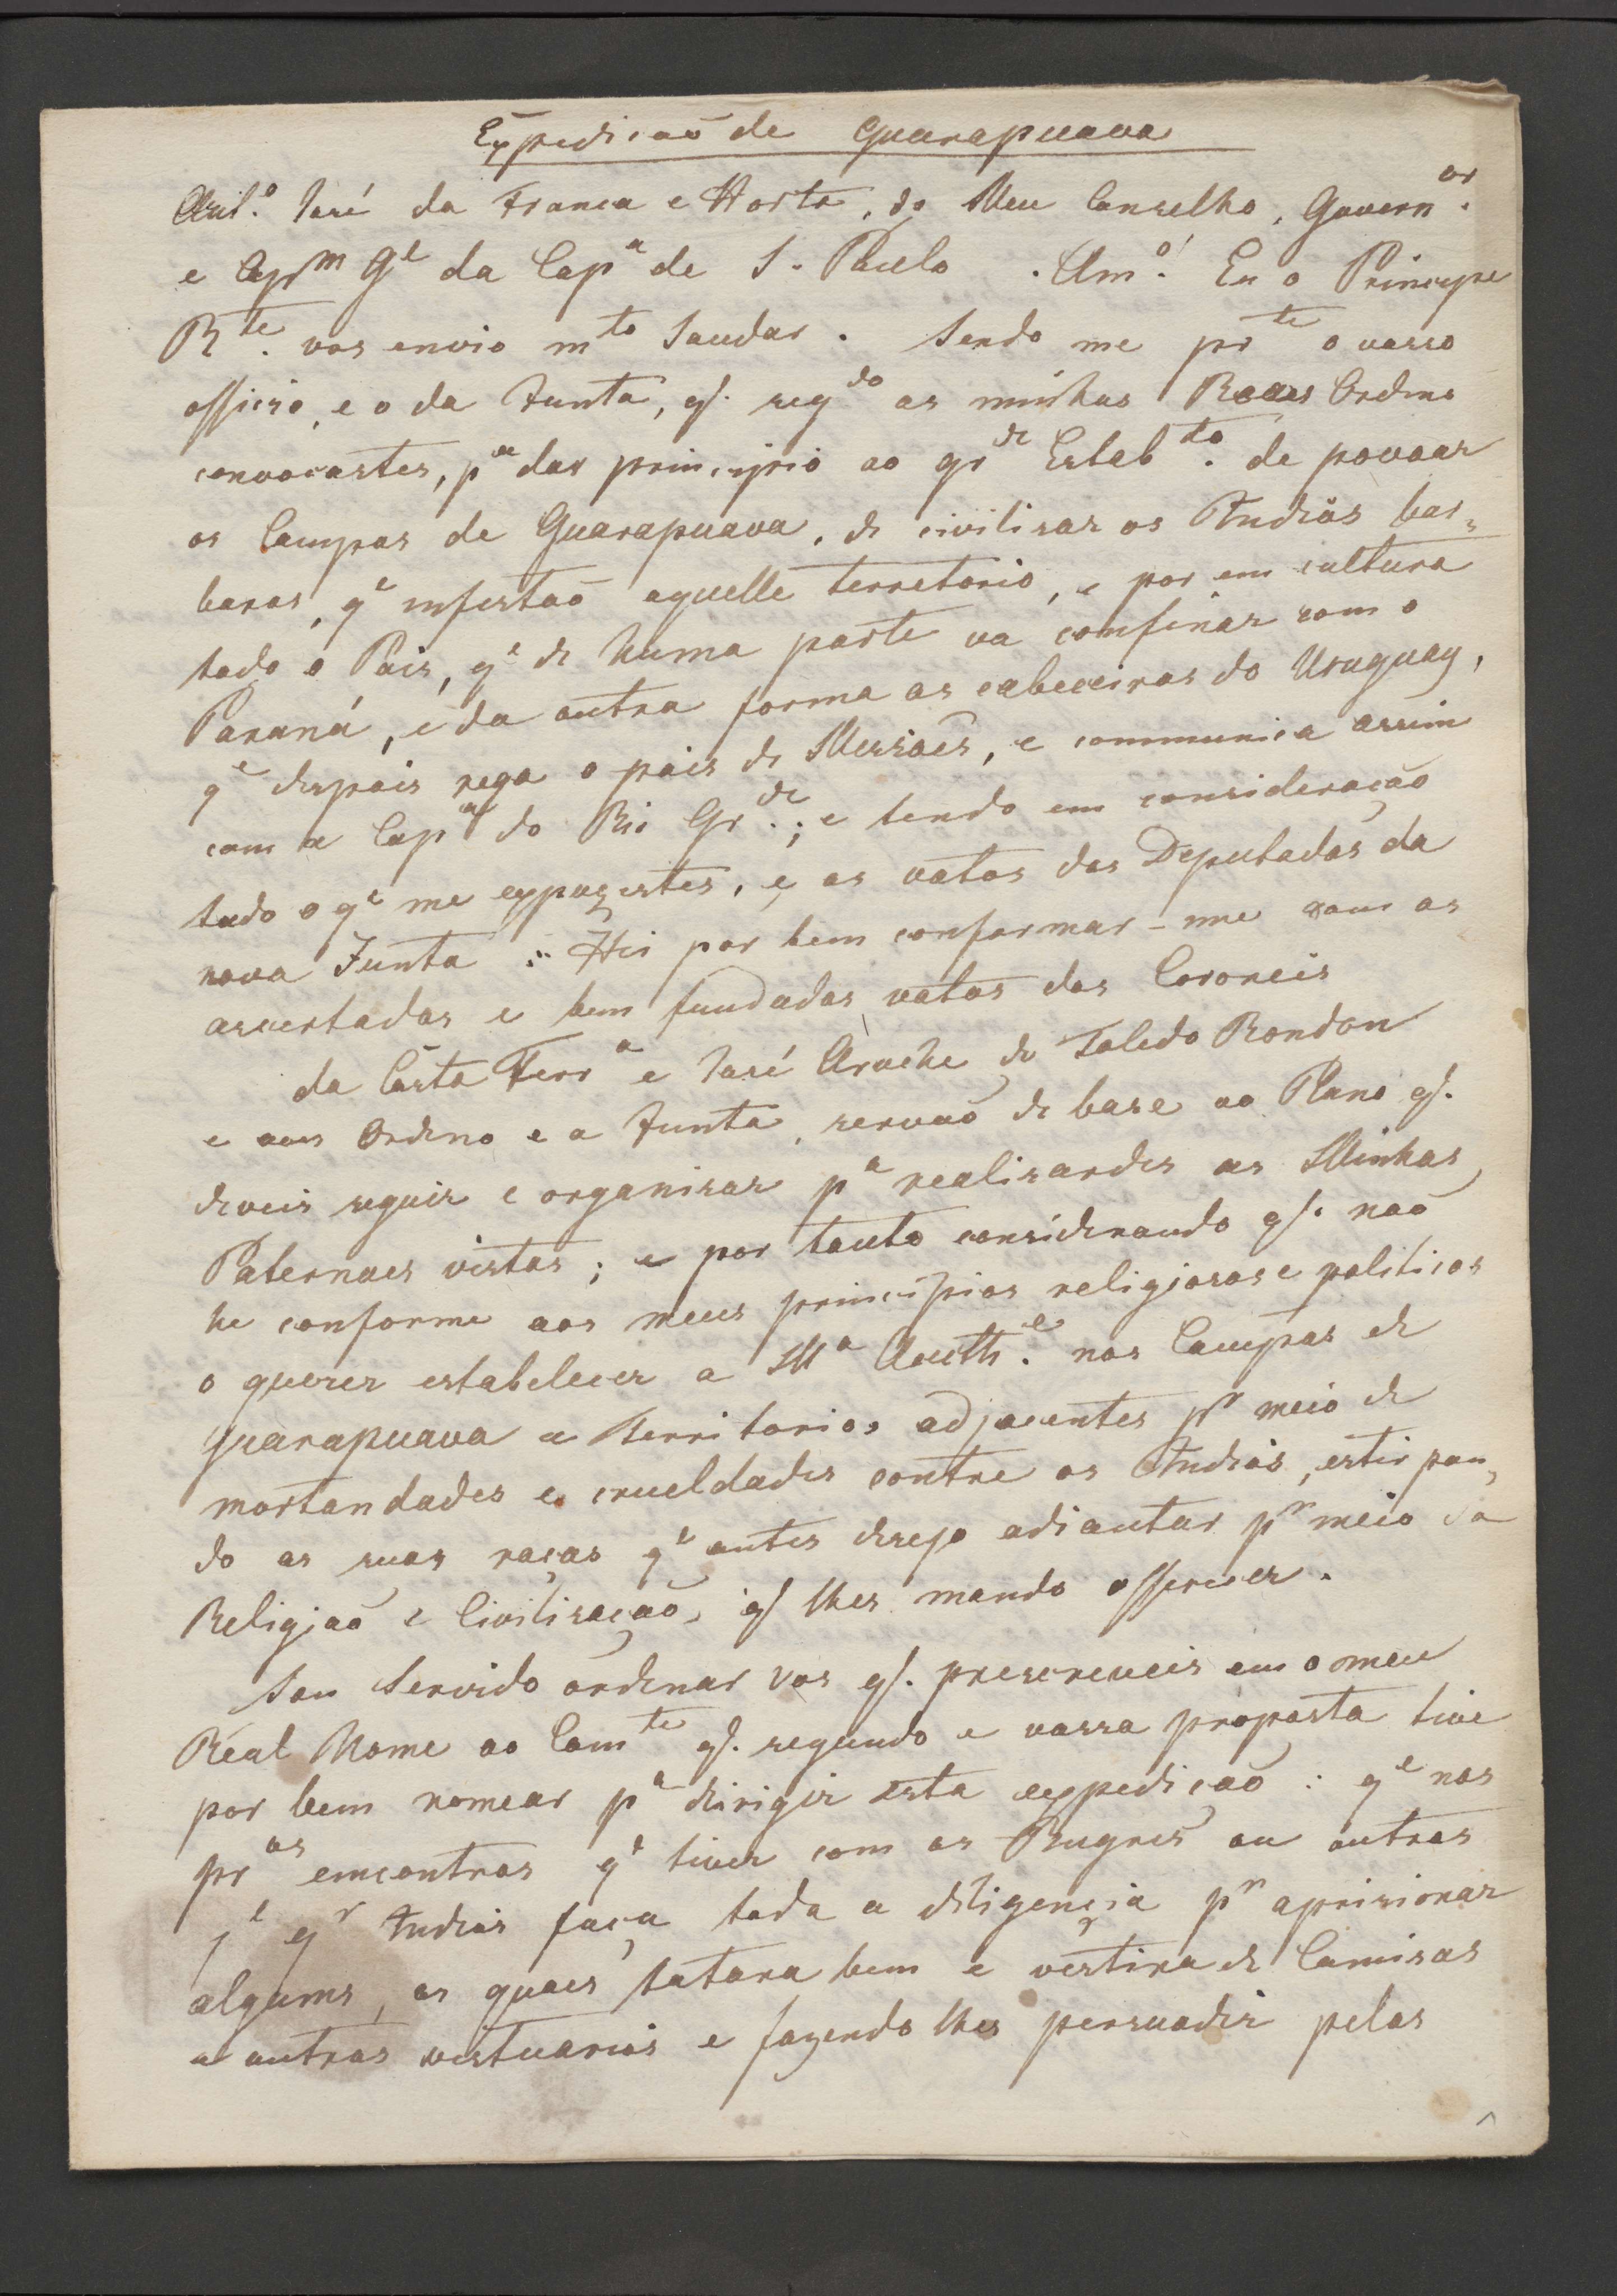 Expedicaõ de Guarapuava
Ant.º José da Franca e Horta, do Meu Conselho, Govern.or
e Capm Gl da Capa de S. Paulo . Amº. Eu o Principe
Rte. vos envio mto Saudar . Sendo me prte o vosso
officio, e o da Junta, q̃. segdo as minhas Reaes Ordens
convocastes, pa dar principio ao grde Estabto. de povoar
os Campos de Guarapuava, de civilisar os Indiõs bar=
baros, qe infestaõ aquelle terretorio, e por em cultura
todo o Pais, qe de huma parte va confinar com o
Paraná, e da outra forma as cabeceiras do Uruguay,
qe depois rega o pais de Missoẽs, e communica assim
com a Capa do Rio Grde.; e tendo em consideração
tudo o qe me expuzestes, e os votos dos Deputados da
nova Junta : Hei por bem conformar-me com os
acertados e bem fundados votos dos Coroneis
da Costa Ferra e José Arouche de Toledo Rondon
e vos Ordeno e a Junta, servaõ de base ao Plano q̃.
deveis seguir e organisar pa realisardes as Minhas
Paternaes vistas; e por tanto considerando q̃. naõ
he conforme aos meus principios religiosos e politicos
o querer estabelecer a Ma Aucthe. nos Campos de
Guarapuava e Territorios adjacentes pr meio de
mortandades e crueldades contra os Indiõs, estirpan=
do as suas raças qe antes desejo adiantar pr meio da
Religiaõ e Civilisaçaõ, q̃ lhes mando offerecer.
Sou Servido ordenar vos q̃. prescreveis em o meu
Real Nome ao Comte q̃. segundo a vossa proposta tive
por bem nomear pa dirigir esta expediçaõ : qe nos
pros emcontros qe tiver com os Bugres ou outros
qr Indios faça toda a diligençia pr aprisionar
alguns, os quaes tatara bem e vestira de Camisas
e outros vestuarios e fazendo lhes persuadir pelos